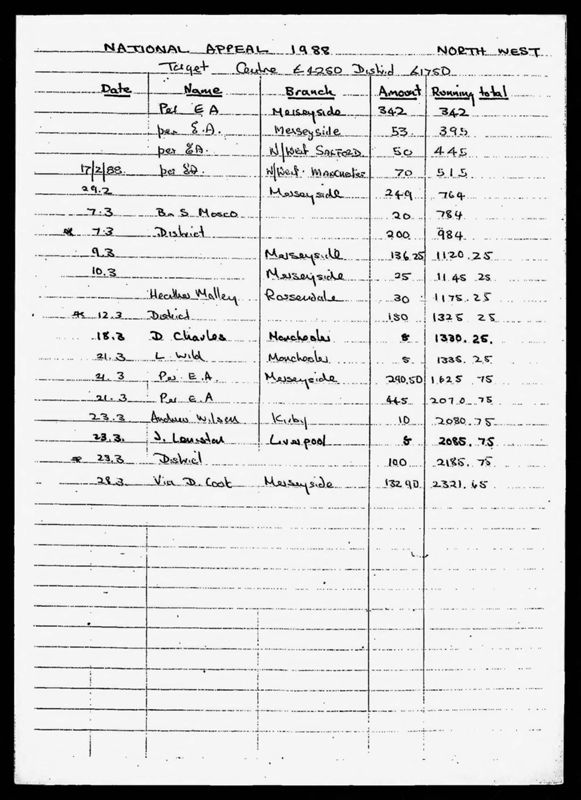 NATIONAL APPEAL 1988 NORTH WEST
Target Centre £4250 District £1750
Date Name Branch Amount Running total
Per E A Merseyside 342 342
per E.A. Merseyside 53 395
per EA. N/West SALFORD 50 445
17/2/88 per EA N/West MANCHESTER 70 515
29.2 Merseyside 249 764
7.3 B S Mosco 20 784
* 7.3 District 200 984
9.3 Merseyside 136 25 1120.25
10.3 Merseyside 25 1145 25
Heather Malley Rossendale 30 1175.25
* 12.3 District 150 1325 25
18.3 D Charles Manchester 5 1330.25.
21.3 L Wild Manchester 5 1335.25
21.3 Per E.A. Merseyside 290.50 1625 75
21.3 Per E.A 445 2070.75
23.3 Andrew Wilson Kirby 10 2080.75
23.3. J. Liverpool 5 2085.75
* 23.3 District 100 2185.75
28.3 Via D. Cook Merseyside 132 90 2321.65